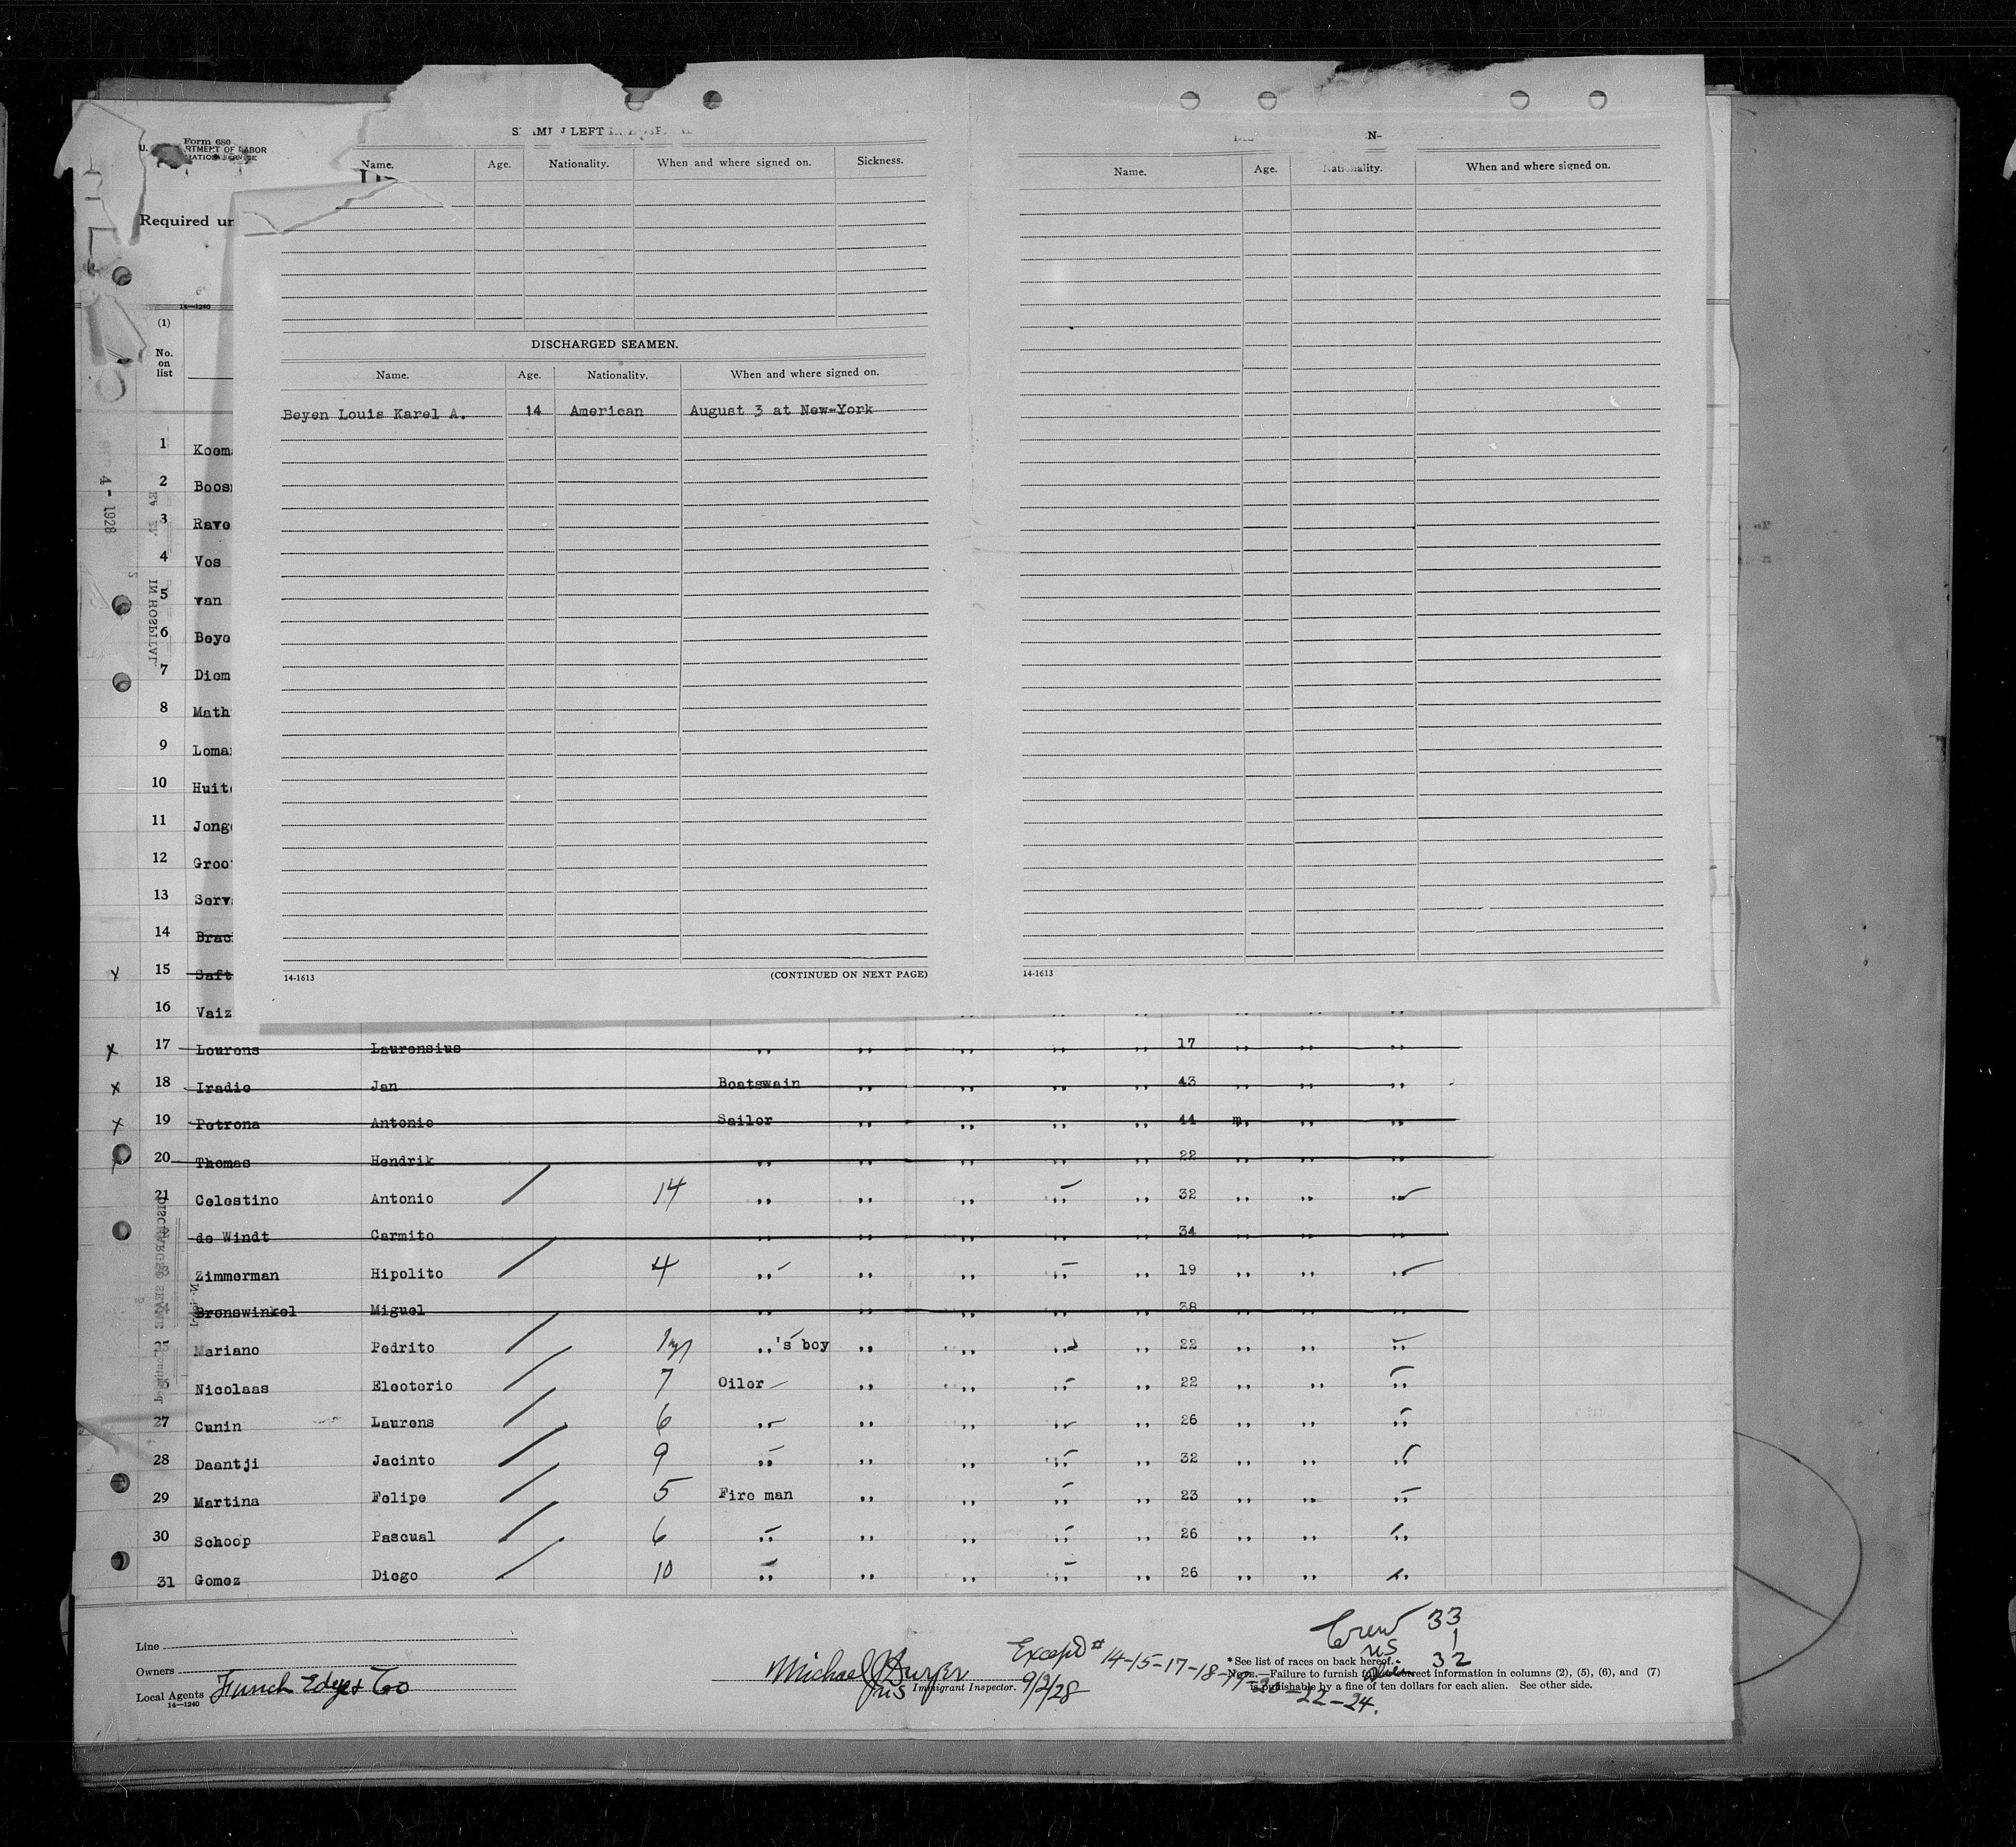 Form 680
U. RTMENT OF LABOR
Required un
14—1240
(1)
No.
on
list
LEFT
Name. Age. Nationality. When and where signed on. Sickness.
DISCHARGED SEAMEN.
Name. Age. Nationality. When and where signed on.
Beyen Louis Karel A. 14 American August 3 at New-York
14-1613 (CONTINUED ON NEXT PAGE)
Name. Age. Nationality. When and where signed on.
14-1613
4 - 1928
IN HOSPITAL
1 Koom
2 Boos
3 Rave
4 Vos
5 van
6 Beye
7 Diom
8 Math
9 Loma
10 Huit
11 Jong
12 Groo
13 Serv
14 Brac
x 15 Saft
16 Vaiz
x 17 Lourens Laurensius ,, ,, ,, ,, ,, 17 ,, ,, ,,
x 18 Iradie Jan Boatswain ,, ,, ,, ,, 43 ,, ,, ,,
x 19 Petrona Antonio Sailor ,, ,, ,, ,, 44 m. ,, ,,
20 Thomas Hendrik ,, ,, ,, ,, ,, 22 ,, ,, ,,
21 Celestino Antonio 14 ,, ,, ,, ,, ,, 32 ,, ,, ,,
de Windt Carmito ,, ,, ,, ,, ,, 34 ,, ,, ,,
3 Zimmerman Hipolito 4 ,, ,, ,, ,, ,, 19 ,, ,, ,,
4 Bronswinkel Miguel ,, ,, ,, ,, ,, 38 ,, ,, ,,
25 Mariano Pedrito 1 ,,'s boy ,, ,, ,, ,, 22 ,, ,, ,,
6 Nicolaas Eleoterio 7 Oiler ,, ,, ,, ,, 22 ,, ,, ,,
27 Cunin Laurens 6 ,, ,, ,, ,, ,, 26 ,, ,, ,,
28 Daantji Jacinto 9 ,, ,, ,, ,, ,, 32 ,, ,, ,,
29 Martina Felipe 5 Fire man ,, ,, ,, ,, 23 ,, ,, ,,
30 Schoop Pascual 6 ,, ,, ,, ,, ,, 26 ,, ,, ,,
31 Gomez Diego 10 ,, ,, ,, ,, ,, 26 ,, ,, ,,
DISCHARGED SEAME
Line
Owners
Local Agents Funch Edye & Co
14—1240
Michael
Immigrant Inspector.
Except # 14-15-17-18-19-20-22-24.
9/2/28
Crew 33
US 1
Alien 32
* See list of races on back hereof.
NOTE.—Failure to furnish full or correct information in columns (2), (5), (6), and (7)
is punishable by a fine of ten dollars for each alien. See other side.